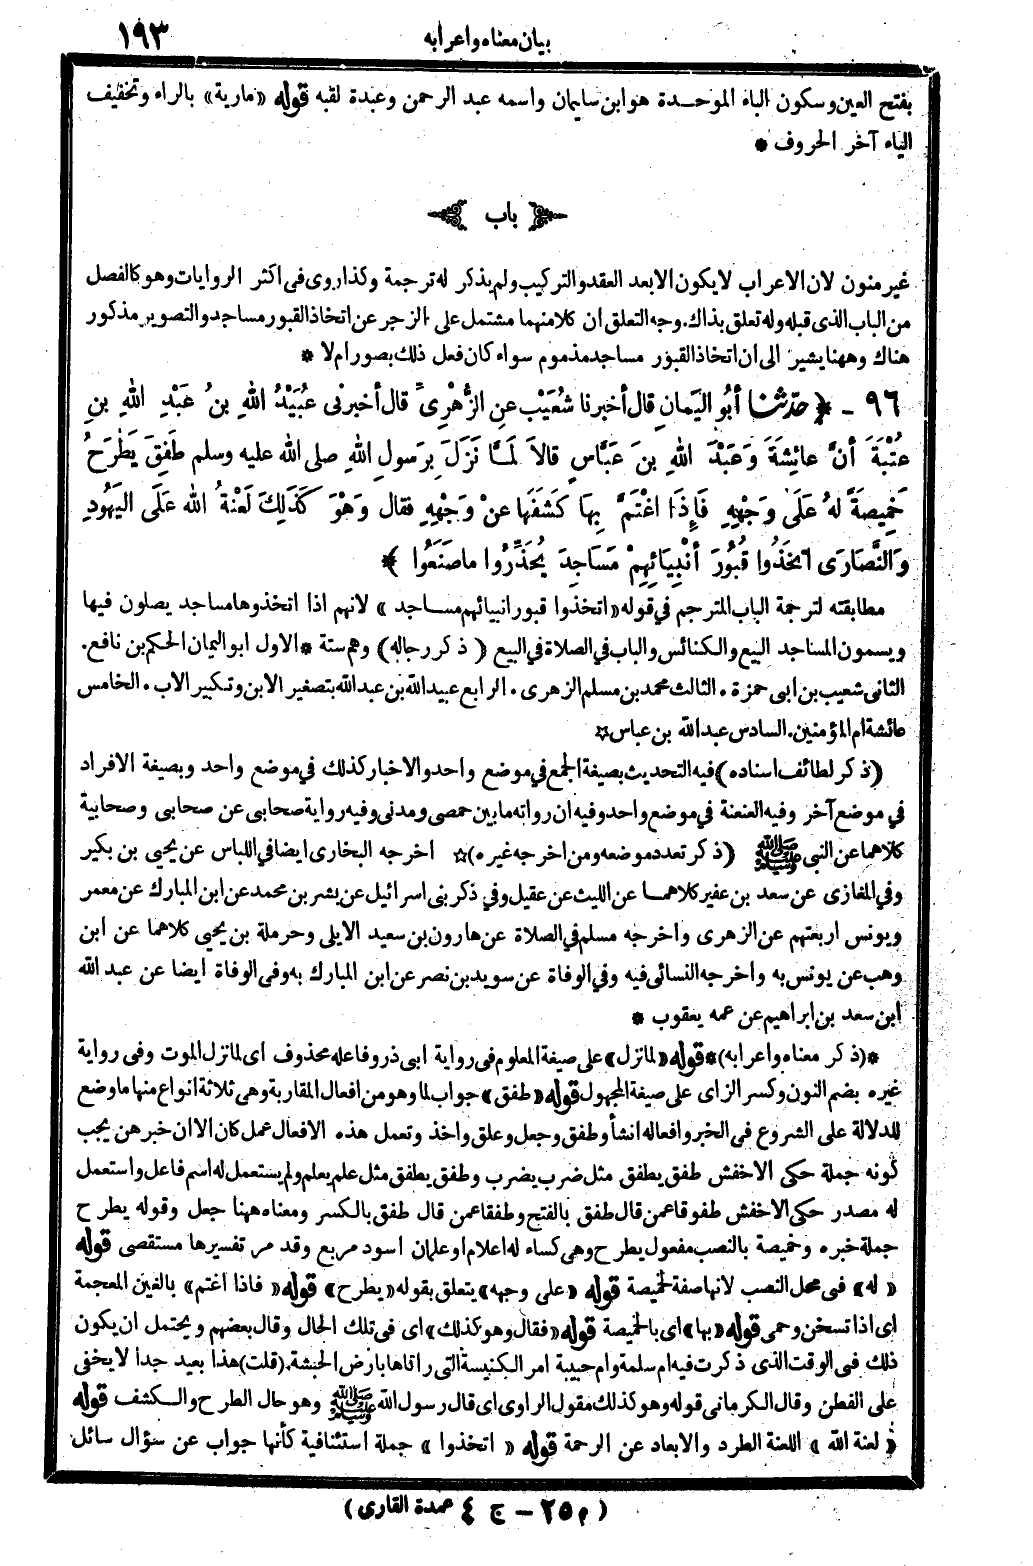 بيان معناه واعرابه ١٩٣
بفتح العين وسكون الباء الموحدة هو ابن سليمان واسمه عبد الرحمن وعبدة لقبه قوله «مارية» بالراء وتخفيف
الياء آخر الحروف *
باب
غير منون لان الاعراب لا يكون الا بعد العقد والتركيب ولم يذكر له ترجمة وكذا روى فى اكثر الروايات وهو كالفصل
من الباب الذى قبله وله تعلق بذاك. وجه التعلق ان كلا منهما مشتمل على الزجر عن اتخاذ القبور مساجد والتصوير مذكور
هناك وههنا يشير الى ان اتخاذ القبور مساجد مذموم سواء كان فعل ذلك بصور ام لا *
٩٦ - ﴿ حدّثنا أبُو اليَمانِ قال أخبرنا شُعَيْب عنِ الزُّهْرِيِّ قال أخبرنى عُبَيْدُ اللهِ بنُ عَبْدِ اللهِ بنِ
عُتْبَةَ أنَّ عائِشةَ وَعَبْدَ اللهِ بنَ عَبَّاسٍ قالاَ لَمَّا نَزَلَ بِرَسولِ اللهِ صلى الله عليه وسلم طَفِقَ يَطْرَحُ
خَمِيصَةً لهُ عَلَى وَجْهِهِ فَإِذَا اغْتَمَّ بِهَا كَشَفَهَا عنْ وَجْهِهِ فقال وَهْوَ كَذَلِكَ لَعْنَةُ اللهِ عَلَى اليَهُودِ
وَالنَّصَارَى اتَّخَذُوا قُبُورَ أنْبِيَائِهِمْ مَسَاجِدَ يُحَذِّرُوا ماصَنَعُوا ﴾ *
مطابقته لترجمة الباب المترجم فى قوله «اتخذوا قبور انبيائهم مساجد» لانهم اذا اتخذوها مساجد يصلون فيها
ويسمون المساجد البيع والكنائس والباب فى الصلاة فى البيع (ذكر رجاله) وهم ستة * الاول ابو اليمان الحكم بن نافع.
الثانى شعيب بن ابى حمزة. الثالث محمد بن مسلم الزهرى. الرابع عبيد الله بن عبد الله بتصغير الابن وتكبير الاب. الخامس
عائشة ام المؤمنين. السادس عبد الله بن عباس ☆
(ذكر لطائف اسناده) فيه التحديث بصيغة الجمع فى موضع واحد والاخبار كذلك فى موضع واحد وبصيغة الافراد
فى موضع آخر وفيه العنعنة فى موضع واحد وفيه ان رواته ما بين حمصى ومدنى وفيه رواية صحابى عن صحابى وصحابية
كلاهما عن النبى ﷺ (ذكر تعدد موضعه ومن اخرجه غيره) ☆ اخرجه البخارى ايضا فى اللباس عن يحيى بن بكير
وفى المغازى عن سعد بن عفير كلاهما عن الليث عن عقيل وفى ذكر بنى اسرائيل عن بشر بن محمد عن ابن المبارك عن معمر
ويونس اربعتهم عن الزهرى واخرجه مسلم فى الصلاة عن هارون بن سعيد الايلى وحرملة بن يحيى كلاهما عن ابن
وهب عن يونس به واخرجه النسائى فيه وفى الوفاة عن سويد بن نصر عن ابن المبارك به وفى الوفاة ايضا عن عبد الله
ابن سعد بن ابراهيم عن عمه يعقوب *
* (ذكر معناه واعرابه) * قوله «لما نزل» على صيغة المعلوم فى رواية ابى ذر وفاعله محذوف اى لما نزل الموت وفى رواية
غيره بضم النون وكسر الزاى على صيغة المجهول قوله «طفق» جواب لما وهو من افعال المقاربة وهى ثلاثة انواع منها ما وضع
للدلالة على الشروع فى الخبر وافعاله انشأ وطفق وجعل وعلق واخذ وتعمل هذه الافعال عمل كان الا ان خبرهن يجب
كونه جملة حكى الاخفش طفق يطفق مثل ضرب يضرب وطفق يطفق مثل علم يعلم ولم يستعمل له اسم فاعل واستعمل
له مصدر حكى الاخفش طفوقا عمن قال طفق بالفتح وطفقا عمن قال طفق بالكسر ومعناه ههنا جعل وقوله يطرح
جملة خبره وخميصة بالنصب مفعول يطرح وهى كساء له اعلام او علمان اسود مربع وقد مر تفسيرها مستقصى قوله
«له» فى محل النصب لانها صفة لخميصة قوله «على وجهه» يتعلق بقوله «يطرح» قوله «فاذا اغتم» بالغين المعجمة
اى اذا تسخن وحمى قوله «بها» اى بالخميصة قوله «فقال وهو كذلك» اى فى تلك الحال وقال بعضهم ويحتمل ان يكون
ذلك فى الوقت الذى ذكرت فيه ام سلمة وام حبيبة امر الكنيسة التى راتاها بارض الحبشة. (قلت) هذا بعيد جدا لا يخفى
على الفطن وقال الكرمانى قوله وهو كذلك مقول الراوى اى قال رسول الله ﷺ وهو حال الطرح والكشف قوله
«لعنة الله» اللعنة الطرد والابعاد عن الرحمة قوله «اتخذوا» جملة استئنافية كأنها جواب عن سؤال سائل
(م ٢٥ - ج ٤ عمدة القارى)